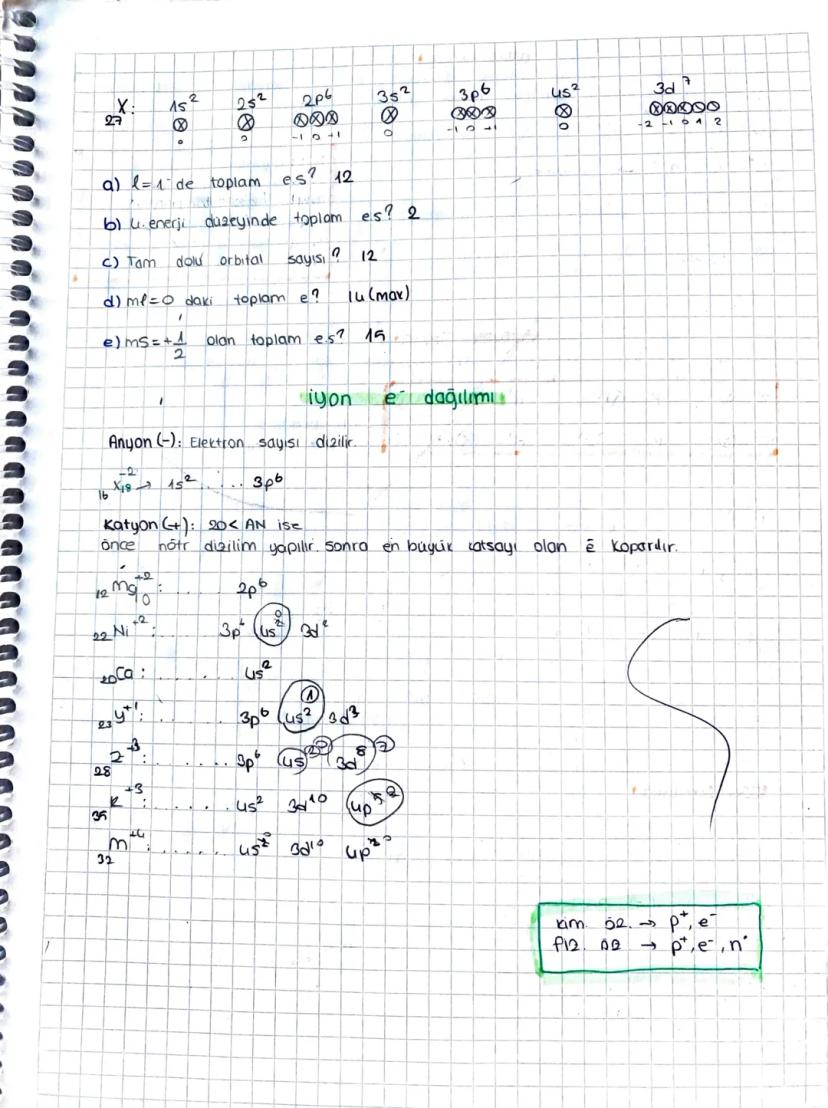 27X: 1s² 2s² 2p⁶ 3s² 3p⁶ 4s² 3d⁷
0 0 -1 0 +1 0 -1 0 +1 0 -2 -1 0 1 2
a) l=1 de toplam e.s? 12
b) 4. enerji düzeyinde toplam e.s? 2
c) Tam dolu orbital sayısı? 12
d) ml=0 daki toplam e? 14 (max)
e) ms=+1/2 olan toplam e.s? 15
iyon e⁻ dağılımı
Anyon (-): Elektron sayısı dizilir.
16X18⁻² → 1s² ..... 3p⁶
Katyon (+): 20< AN ise
önce nötr dizilim yapılır. sonra en büyük katsayı olan ē kopardır.
12Mg10⁺²: ...... 2p⁶
22Ni⁺²: ...... 3p⁶ 4s² 0 3d²
20Ca: ...... 4s²
23Y⁺¹: ...... 3p⁶ 4s² 1 3d³
28Z⁺³: ...... 3p⁶ 4s² 0 3d⁸ 7
35K⁺³: ...... 4s² 3d¹⁰ 4p⁵ 2
32M⁺⁴: ...... 4s² 0 3d¹⁰ 4p² 0
kim. öz. → p⁺, e⁻
fiz. öz → p⁺, e⁻, n°